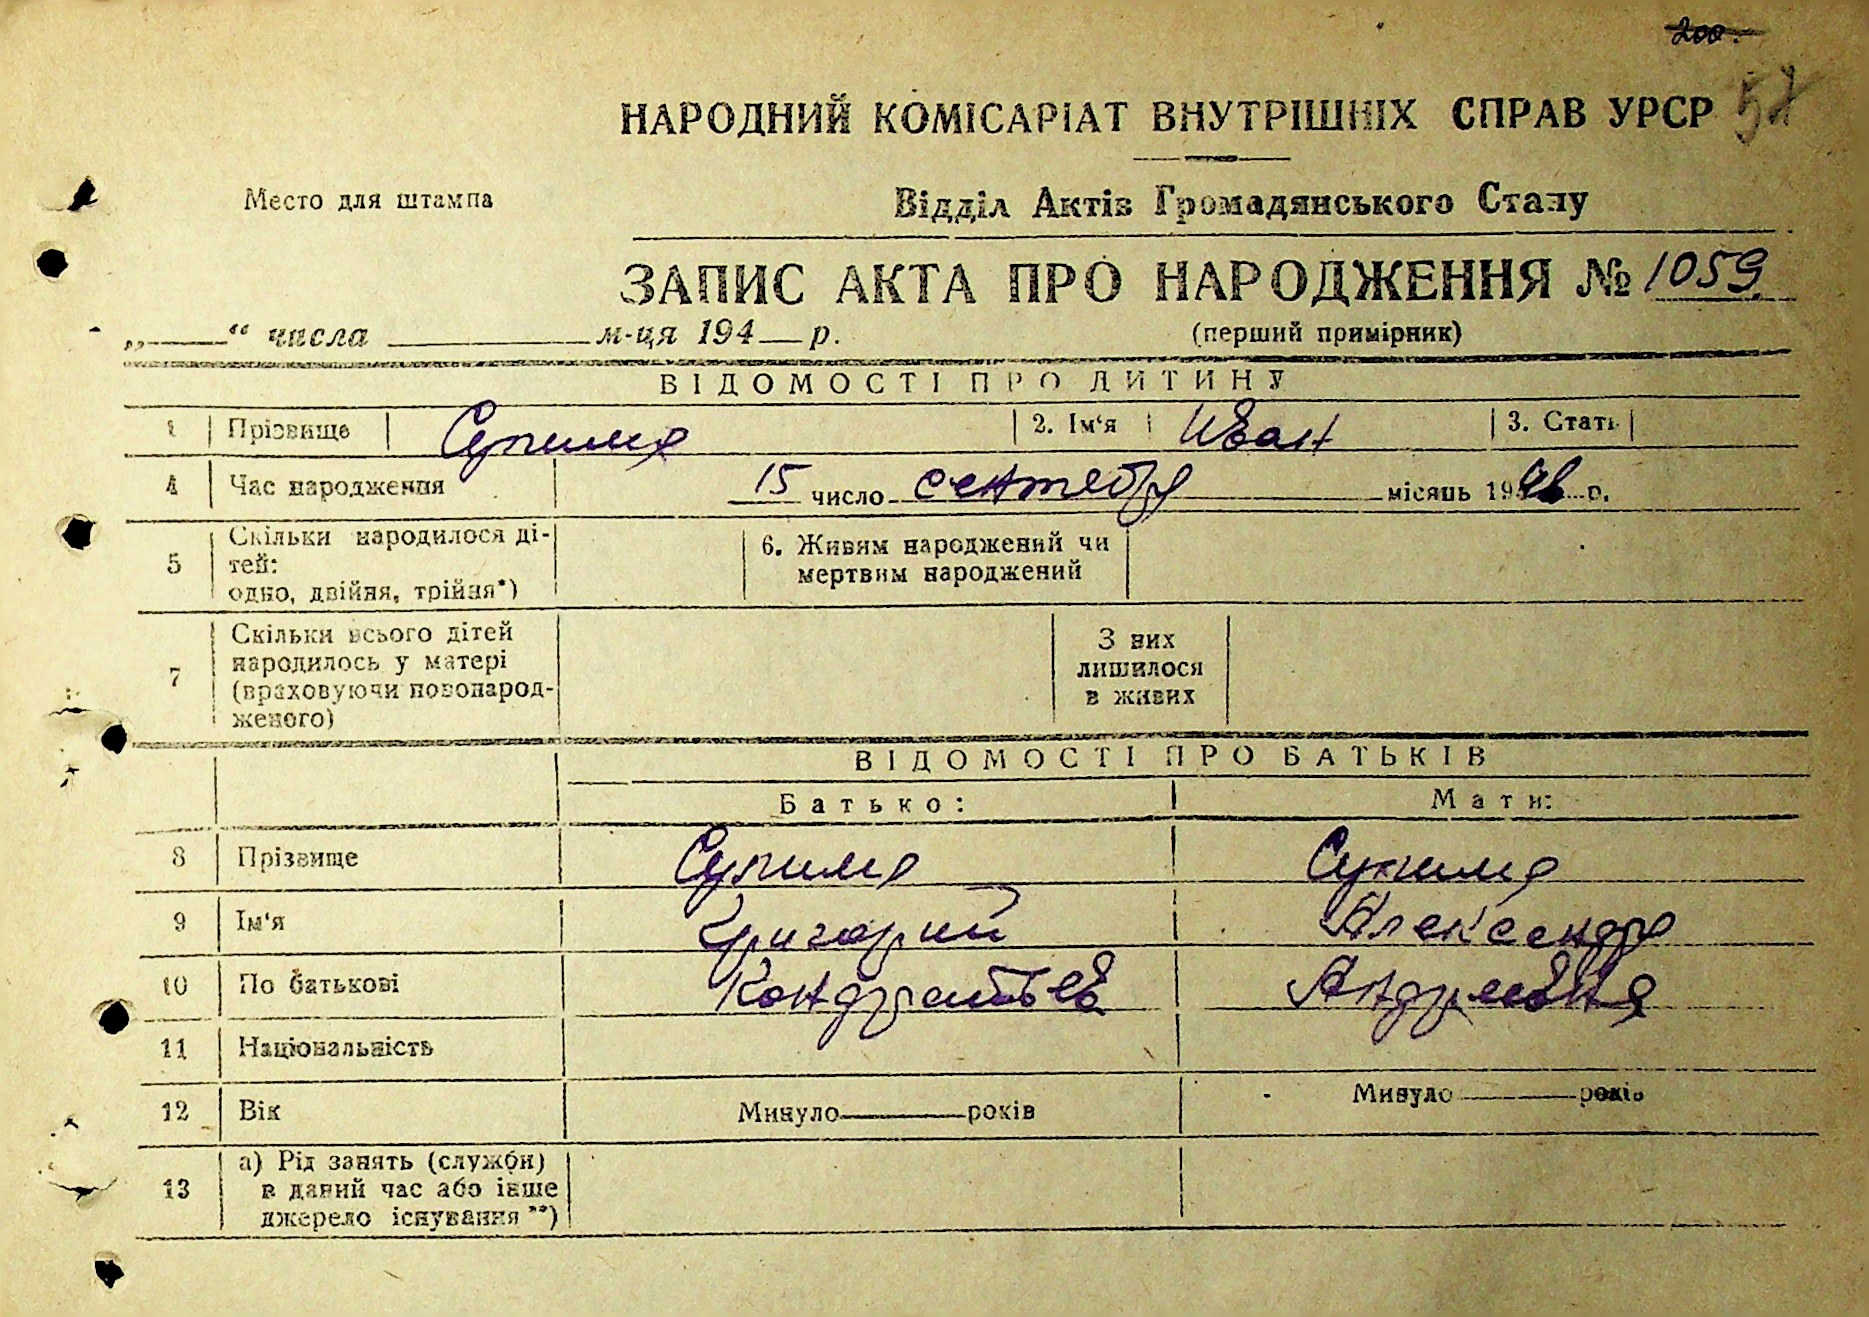 200.
57
НАРОДНИЙ КОМІСАРІАТ ВНУТРІШНІХ СПРАВ УРСР
Место для штампа
Відділ Актів Громадянського Стану
ЗАПИС АКТА ПРО НАРОДЖЕННЯ № 1059
„ “ числа м-ця 194 р.
(перший примірник)
ВІДОМОСТІ ПРО ДИТИНУ
1 Прізвище Сулима 2. Ім‘я Иван 3. Стать
4 Час народження 15 число сентября місяць 194 р.
5 Скільки народилося ді-
тей:
одно, двійня, трійня*)
6. Живим народжений чи
мертвим народжений
7 Скільки всього дітей
народилось у матері
(враховуючи новонарод-
женого)
З них
лишилося
в живих
ВІДОМОСТІ ПРО БАТЬКІВ
Батько: Мати:
8 Прізвище Сулима Сулима
9 Ім‘я Григорий Александра
10 По батькові Кондратьев Андреевна
11 Національність
12 Вік Минуло років Минуло років
13 а) Рід занять (служби)
в даний час або інше
джерело існування **)